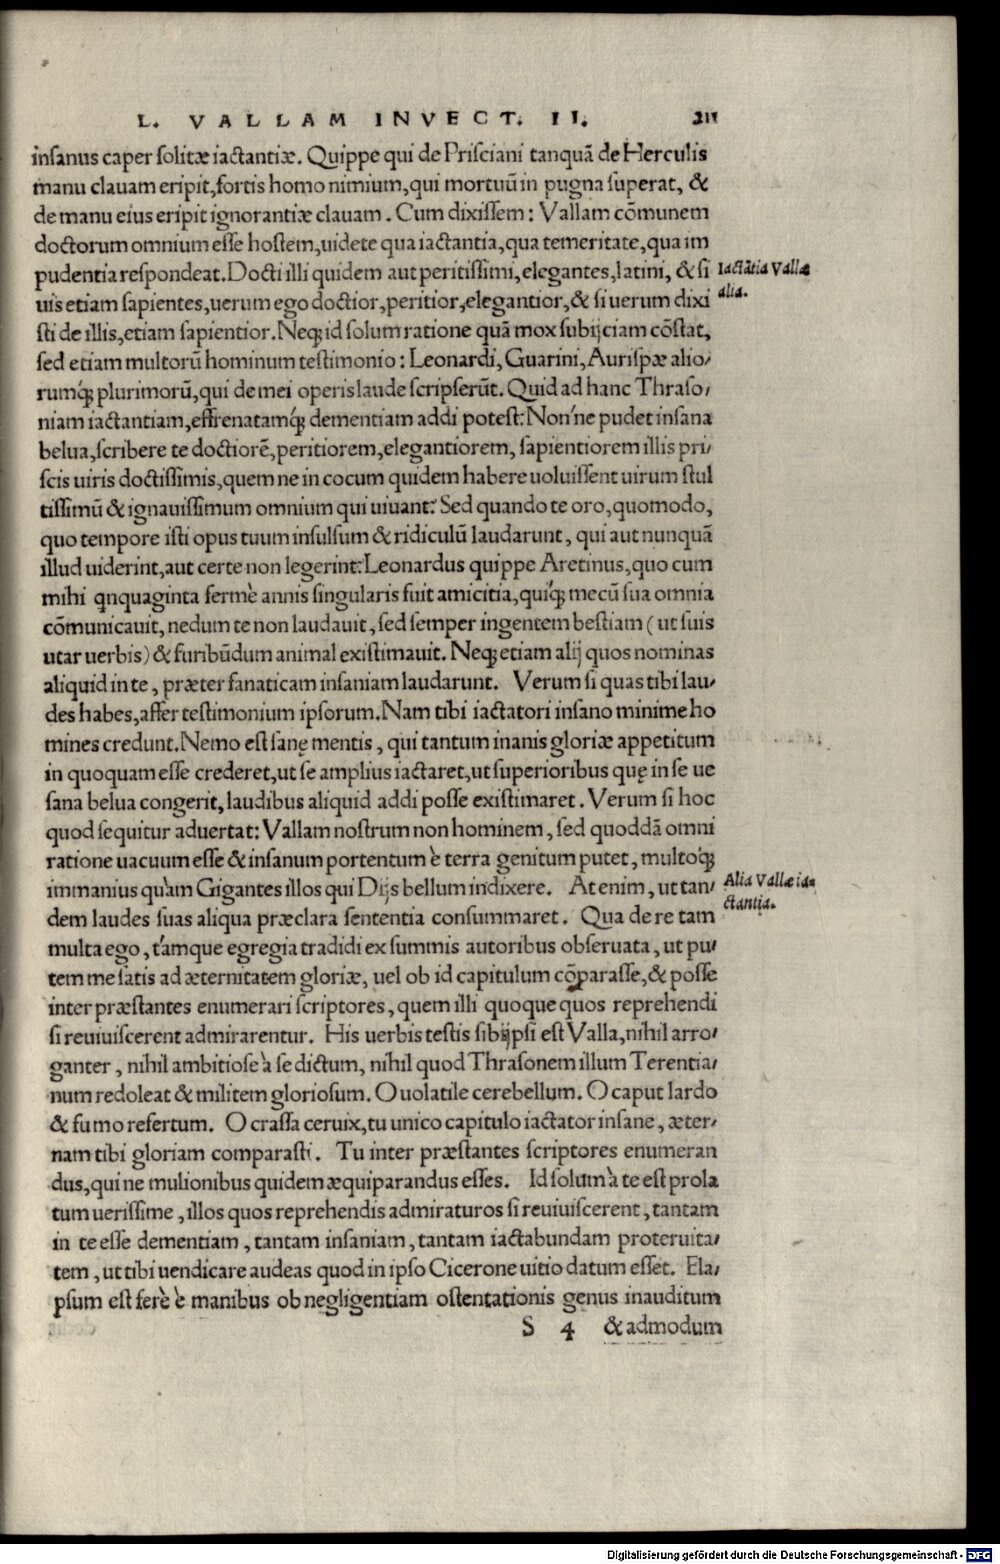 L. VALLAM INVECT. II. 211
insanus caper solitæ iactantiæ. Quippe qui de Prisciani tanquã de Herculis
manu clauam eripit, fortis homo nimium, qui mortuũ in pugna superat, &
de manu eius eripit ignorantiæ clauam. Cum dixissem: Vallam cõmunem
doctorum omnium esse hostem, uidete qua iactantia, qua temeritate, qua im
pudentia respondeat. Docti illi quidem aut peritissimi, elegantes, latini, & si
Iactãtia Vallæ
uis etiam sapientes, uerum ego doctior, peritior, elegantior, & si uerum dixi
alia.
sti de illis, etiam sapientior. Neq; id solum ratione quã mox subijciam cõstat,
sed etiam multorũ hominum testimonio: Leonardi, Guarini, Aurispæ alio/
rumq́; plurimorũ, qui de mei operis laude scripserũt. Quid ad hanc Thraso/
niam iactantiam, effrenatamq́; dementiam addi potest? Non'ne pudet insana
belua, scribere te doctiorẽ, peritiorem, elegantiorem, sapientiorem illis pri/
scis uiris doctissimis, quem ne in cocum quidem habere uoluissent uirum stul
tissimũ & ignauissimum omnium qui uiuant? Sed quando te oro, quomodo,
quo tempore isti opus tuum insulsum & ridiculũ laudarunt, qui aut nunquã
illud uiderint, aut certe non legerint? Leonardus quippe Aretinus, quo cum
mihi qnquaginta fermè annis singularis fuit amicitia, quiq́; mecũ sua omnia
cõmunicauit, nedum te non laudauit, sed semper ingentem bestiam (ut suis
utar uerbis) & furibũdum animal existimauit. Neq; etiam alij quos nominas
aliquid in te, præter fanaticam insaniam laudarunt. Verum si quas tibi lau/
des habes, affer testimonium ipsorum. Nam tibi iactatori insano minime ho
mines credunt. Nemo est sanę mentis, qui tantum inanis gloriæ appetitum
in quoquam esse crederet, ut se amplius iactaret, ut superioribus quę in se ue
sana belua congerit, laudibus aliquid addi posse existimaret. Verum si hoc
quod sequitur aduertat: Vallam nostrum non hominem, sed quoddã omni
ratione uacuum esse & insanum portentum è terra genitum putet, multoq́;
immanius quàm Gigantes illos qui Dijs bellum indixere. At enim, ut tan/
Alia Vallæ ia-
dem laudes suas aliqua præclara sententia consummaret. Qua de re tam
ctantia.
multa ego, támque egregia tradidi ex summis autoribus obseruata, ut pu/
tem me satis ad æternitatem gloriæ, uel ob id capitulum cõparasse, & posse
inter præstantes enumerari scriptores, quem illi quoque quos reprehendi
si reuiuiscerent admirarentur. His uerbis testis sibijpsi est Valla, nihil arro/
ganter, nihil ambitiose à se dictum, nihil quod Thrasonem illum Terentia/
num redoleat & militem gloriosum. O uolatile cerebellum. O caput lardo
& fumo refertum. O crassa ceruix, tu unico capitulo iactator insane, æter/
nam tibi gloriam comparasti. Tu inter præstantes scriptores enumeran
dus, qui ne mulionibus quidem æquiparandus esses. Id solum à te est prola
tum uerissime, illos quos reprehendis admiraturos si reuiuiscerent, tantam
in te esse dementiam, tantam insaniam, tantam iactabundam proteruita/
tem, ut tibi uendicare audeas quod in ipso Cicerone uitio datum esset. Ela/
psum est ferè è manibus ob negligentiam ostentationis genus inauditum
S 4 & admodum
Digitalisierung gefördert durch die Deutsche Forschungsgemeinschaft - DFG